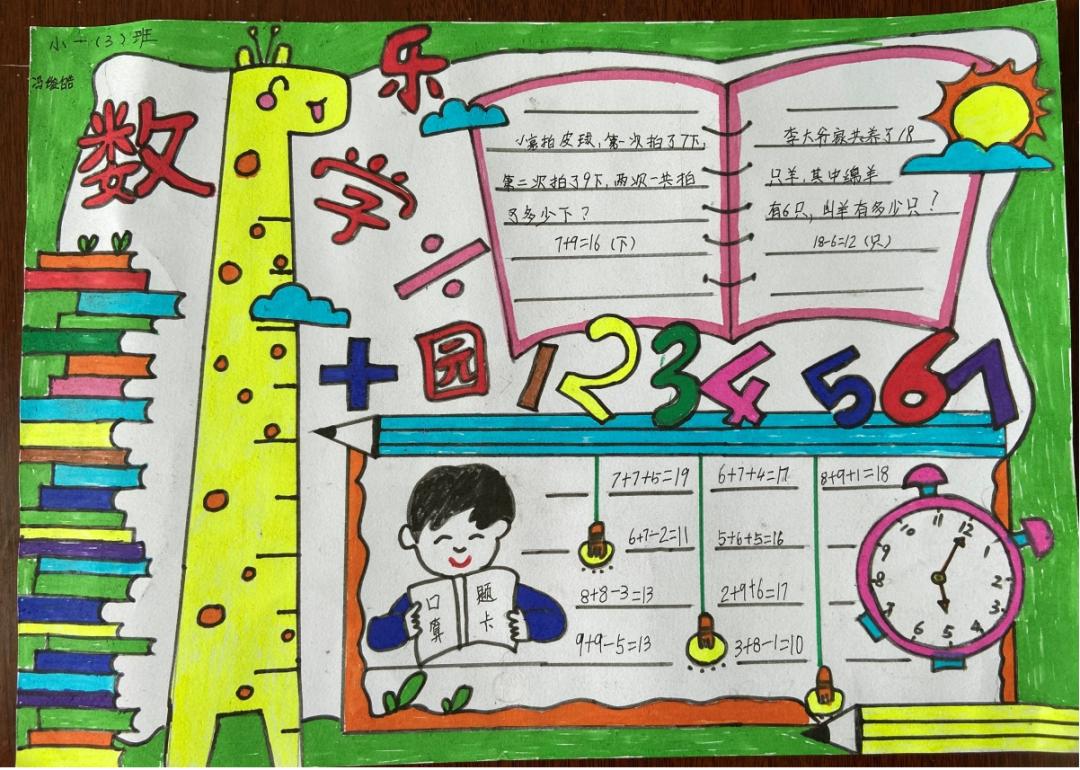 小一(3)班
冯绘皓
数学乐园
÷
+
小亮拍皮球,第一次拍了7下,
第二次拍了9下,两次一共拍
了多少下?
7+9=16(下)
李大爷家共养了18
只羊,其中绵羊
有6只,山羊有多少只?
18-6=12(只)
1 2 3 4 5 6 7
7+7+5=19
6+7+4=17
8+9+1=18
6+7-2=11
5+6+5=16
8+8-3=13
2+9+6=17
9+9-5=13
3+8-1=10
口算
题卡
12
1
2
3
4
5
6
7
8
9
10
11